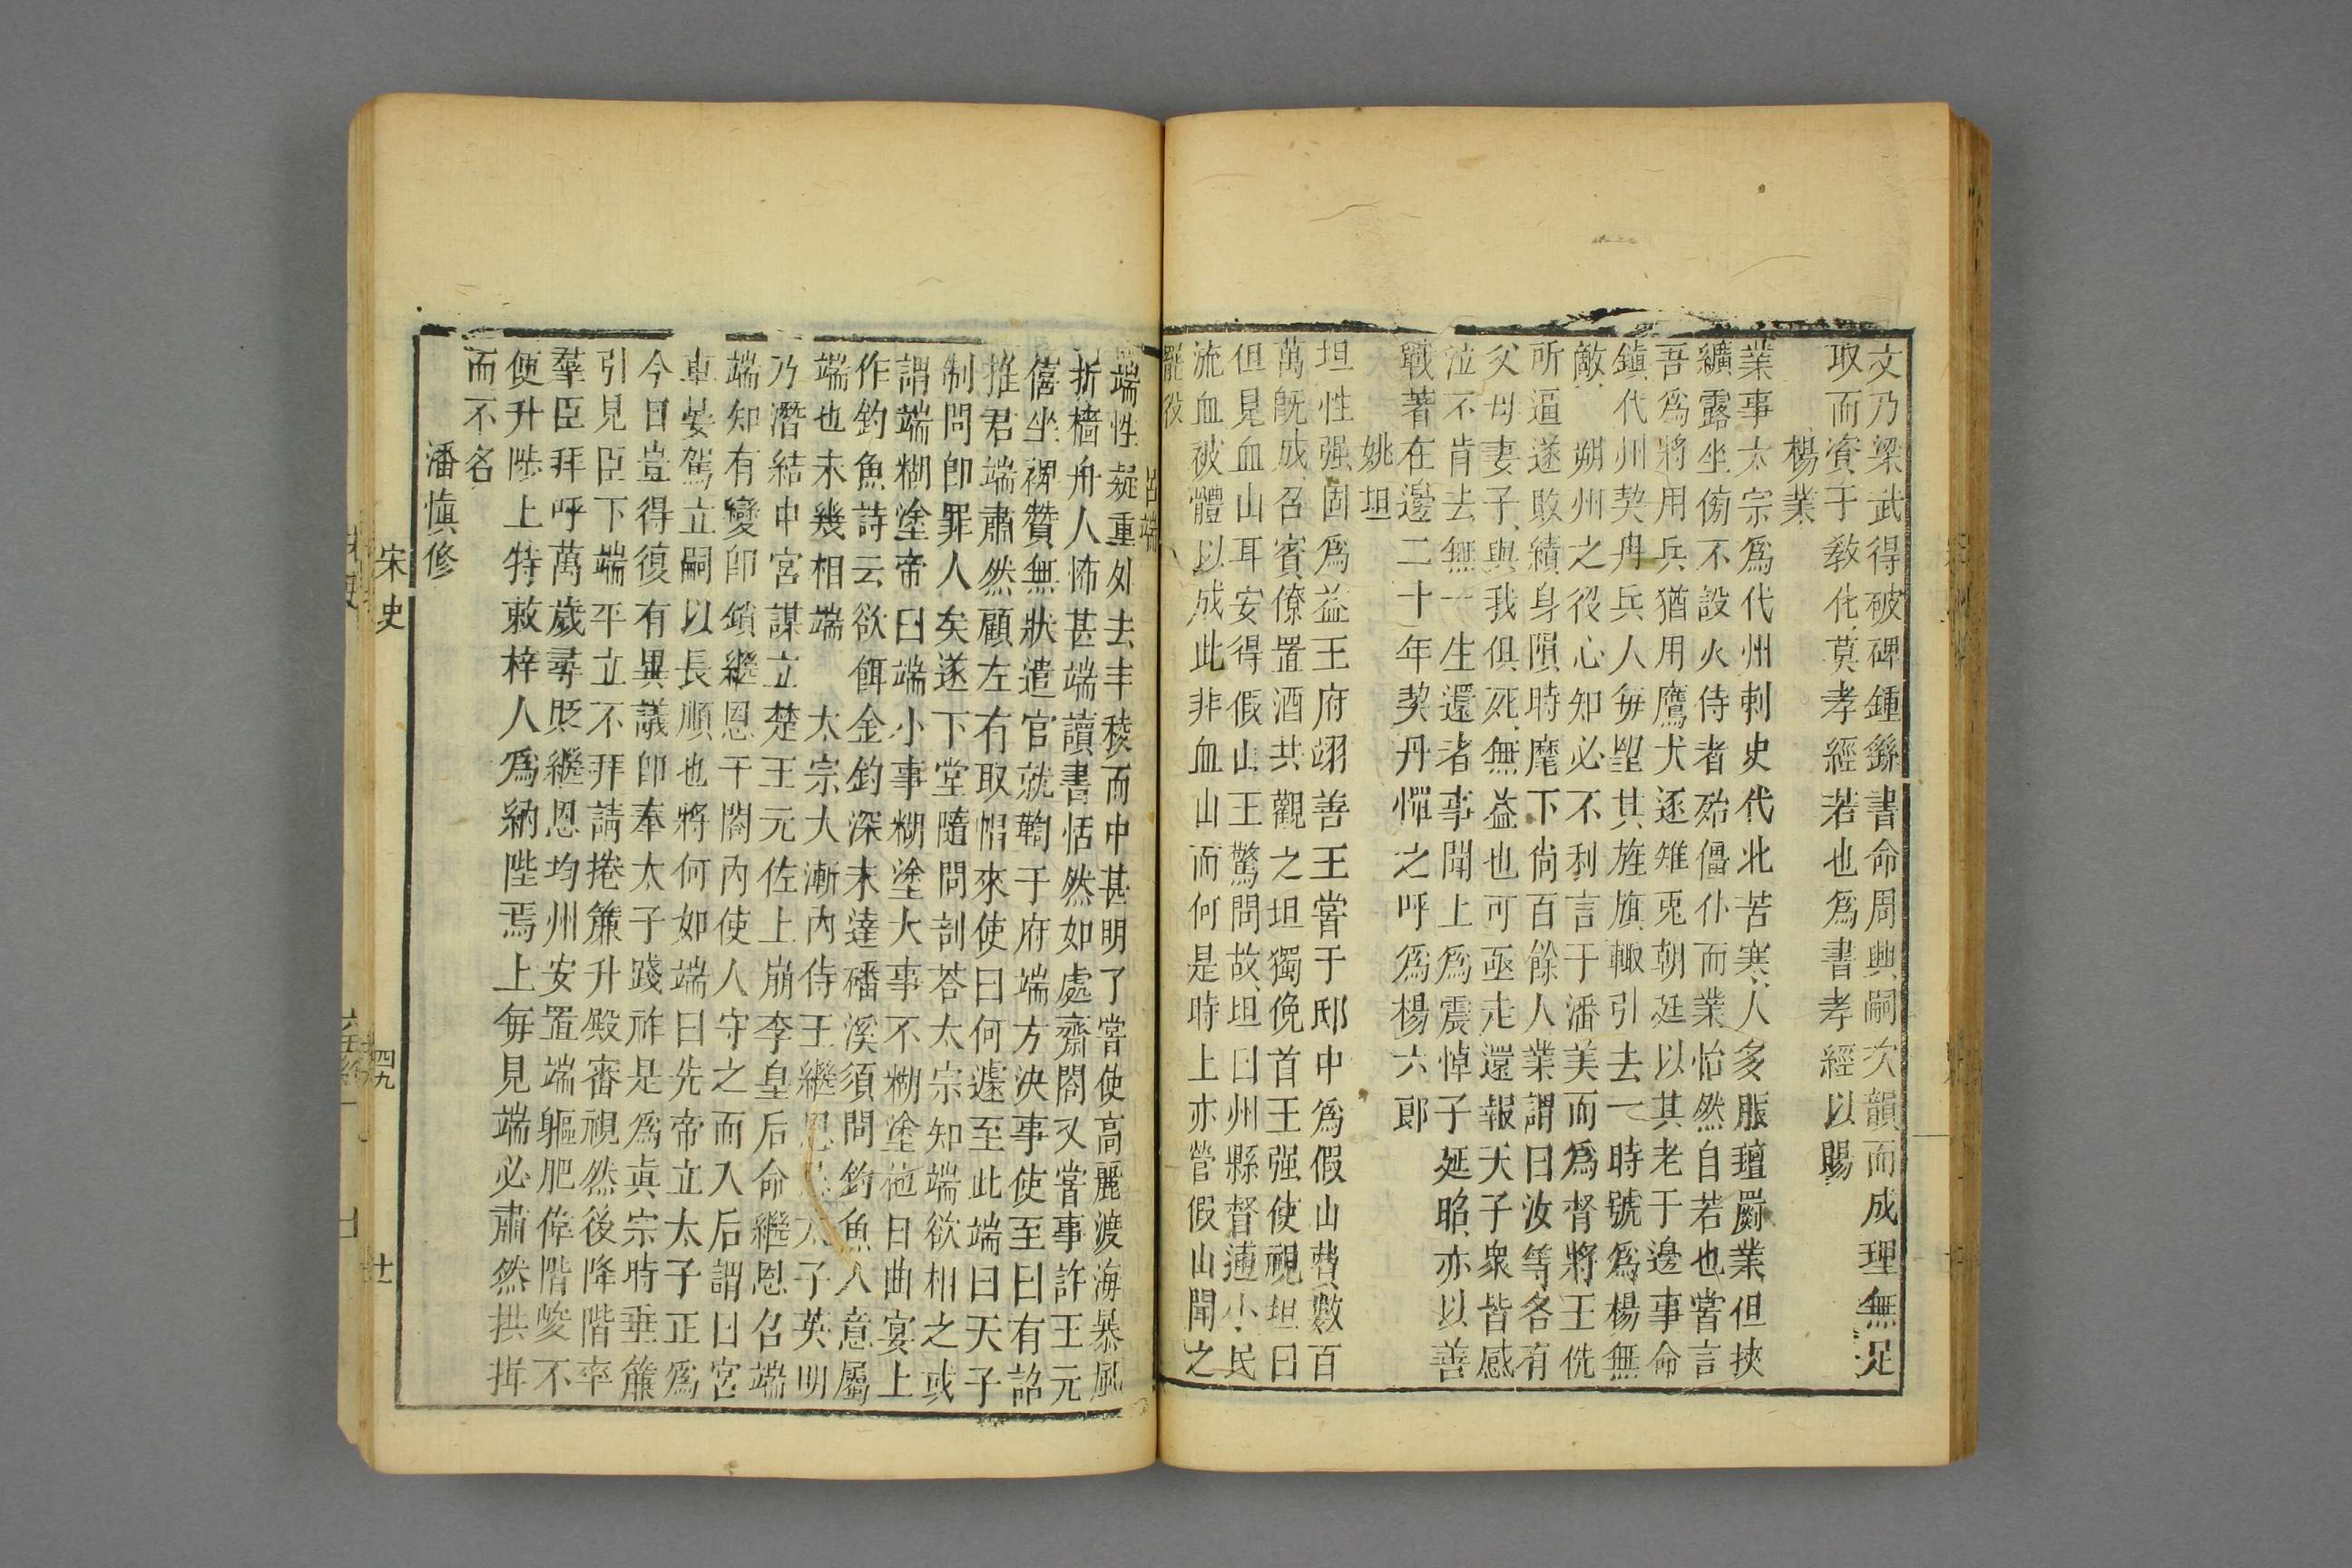 文乃梁武得破碑鍾繇書命周興嗣次韻而成理無足
取而資于教化莫孝經若也為書孝經以賜
楊業
業事太宗為代州刺史代北苦寒人多服氊罽業但挾
纊露坐傍不設火侍者殆僵仆而業怡然自若也嘗言
吾為將用兵猶用鷹犬逐雉兎朝廷以其老于邊事命
鎮代州契丹兵人每望其旌旗輙引去一時號為楊無
敵朔州之役心知必不利言于潘美而為督將王侁
所逼遂敗績身隕時麾下尚百餘人業謂曰汝等各有
父母妻子與我俱死無益也可亟走還報天子衆皆感
泣不肯去無一生還者事聞上為震悼子延昭亦以善
戰著在邊二十年契丹憚之呼為楊六郎
姚坦
坦性强固為益王府翊善王嘗于邸中為假山費數百
萬旣成召賓僚置酒共觀之坦獨俛首王强使視坦曰
但見血山耳安得假山王驚問故坦曰州縣督逋小民
流血被體以成此非血山而何是時上亦營假山聞之
罷役
呂端
端性凝重外去丰稜而中甚明了嘗使高麗渡海暴風
折檣舟人怖甚端讀書恬然如處齋閤又嘗事許王元
僖坐裨贊無狀遣官就鞫于府端方決事使至曰有詔
推君端肅然顧左右取帽來使曰何遽至此端曰天子
制問卽罪人矣遂下堂隨問剖荅太宗知端欲相之或
謂端糊塗帝曰端小事糊塗大事不糊塗他日曲宴上
作釣魚詩云欲餌金鈎深未達磻溪須問釣魚人意屬
端也未幾相端 太宗大漸內侍王繼恩太子英明
乃潛結中宮謀立楚王元佐上崩李皇后命繼恩召端
端知有變卽鎖繼恩干閤內使人守之而入后謂曰宮
車晏駕立嗣以長順也將何如端曰先帝立太子正為
今日豈得復有異議卽奉太子踐祚是為眞宗時垂簾
引見臣下端平立不拜請捲簾升殿審視然後降階率
羣臣拜呼萬歲尋貶繼恩均州安置端軀肥偉階峻不
便升陟上特敕梓人為納陛焉上每見端必肅然拱揖
而不名
潘愼修
宋史
四九
十一